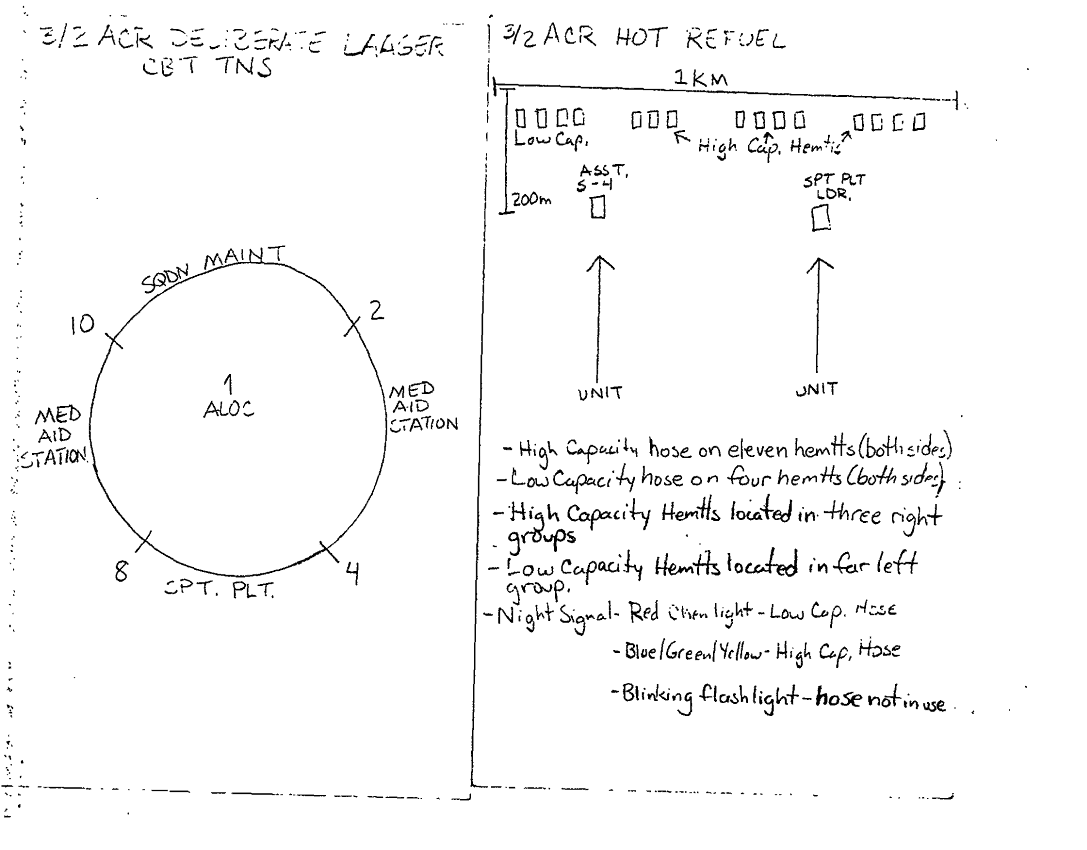 3/2 ACR DELIBERATE LAAGER
CBT TNS
SQDN MAINT
10
2
1
ALOC
MED
AID
STATION
MED
AID
STATION
8
4
SPT. PLT.
3/2 ACR HOT REFUEL
1KM
Low Cap.
High Cap. Hemtts
200m
ASST.
S-4
SPT PLT
LDR.
UNIT
UNIT
- High Capacity hose on eleven hemtts (both sides)
- Low Capacity hose on four hemtts (both sides)
- High Capacity Hemtts located in three right
groups
- Low Capacity Hemtts located in far left
group.
- Night Signal - Red Chem light - Low Cap. Hose
- Blue/Green/Yellow - High Cap. Hose
- Blinking flashlight - hose not in use